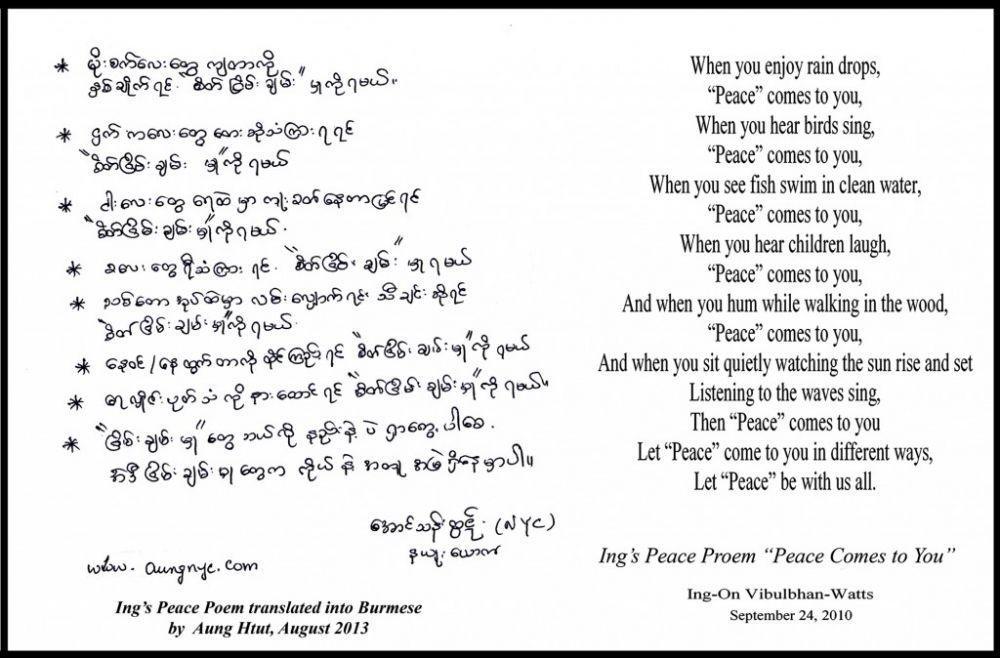 * မိုးစက်လေးတွေ ကျတာကို
နှစ်ချိုက်ရင် "စိတ်ငြိမ်းချမ်း" မှုကိုရမယ်။
* ငှက် ကလေးတွေ တေးဆိုသံကြားရရင်
"စိတ်ငြိမ်းချမ်း မှု"ကိုရမယ်
* ငါးလေးတွေ ရေထဲမှာ ကူးခတ်နေတာမြင်ရင်
"စိတ်ငြိမ်းချမ်းမှု"ကိုရမယ်.
* ကလေးတွေ ရီသံကြားရင်. "စိတ်ငြိမ်းချမ်း" မှုရမယ်
* သစ်တော အုပ်ထဲမှာ လမ်းလျှောက်ရင်း သီချင်းဆိုရင်
"စိတ်ငြိမ်းချမ်းမှု"ကိုရမယ်.
* နေဝင်/နေထွက်တာကို ထိုင်ကြည့်ရင် "စိတ်ငြိမ်းချမ်းမှု"ကိုရမယ်
* ရေလှိုင်းပုတ်သံကို နားထောင်ရင် "စိတ်ငြိမ်းချမ်းမှု"ကိုရမယ်။
* "ငြိမ်းချမ်းမှု"တွေ ဘယ်လိုနည်းနဲ့ပဲ ရှာတွေ့ပါစေ.
အဲဒီငြိမ်းချမ်းမှုတွေက ကိုယ်နဲ့အတူ အမြဲရှိနေမှာပါ။
(NYC)
နယူးယောက်
www.aungnyc.com
Ing's Peace Poem translated into Burmese
by Aung Htut, August 2013
When you enjoy rain drops,
“Peace” comes to you,
When you hear birds sing,
“Peace” comes to you,
When you see fish swim in clean water,
“Peace” comes to you,
When you hear children laugh,
“Peace” comes to you,
And when you hum while walking in the wood,
“Peace” comes to you,
And when you sit quietly watching the sun rise and set
Listening to the waves sing,
Then “Peace” comes to you
Let “Peace” come to you in different ways,
Let “Peace” be with us all.
Ing's Peace Proem “Peace Comes to You”
Ing-On Vibulbhan-Watts
September 24, 2010